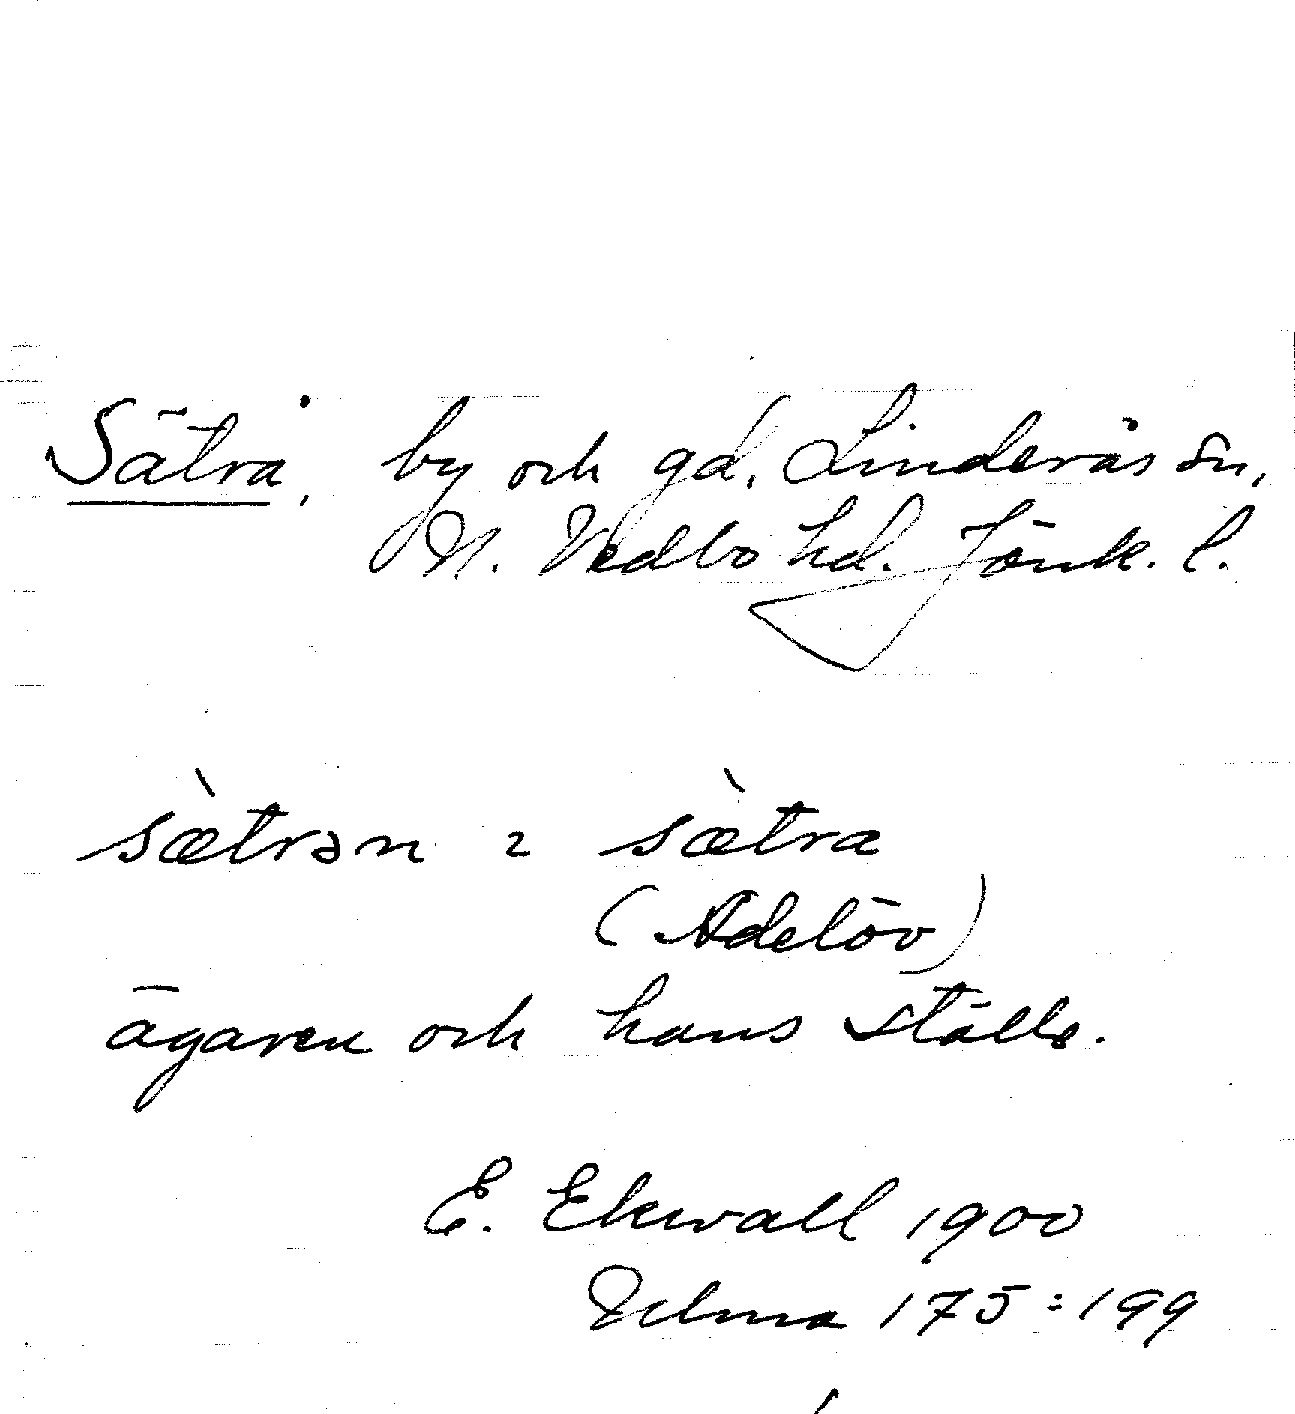 Sätra, by och gd, Linderås sn,
N. Vedbo hd. Jönk. l.
sœ̀trən 2 sœ̀tra
(Adelöv)
ägaren och hans ställe.
E. Ekwall 1900
Ulma 175:199